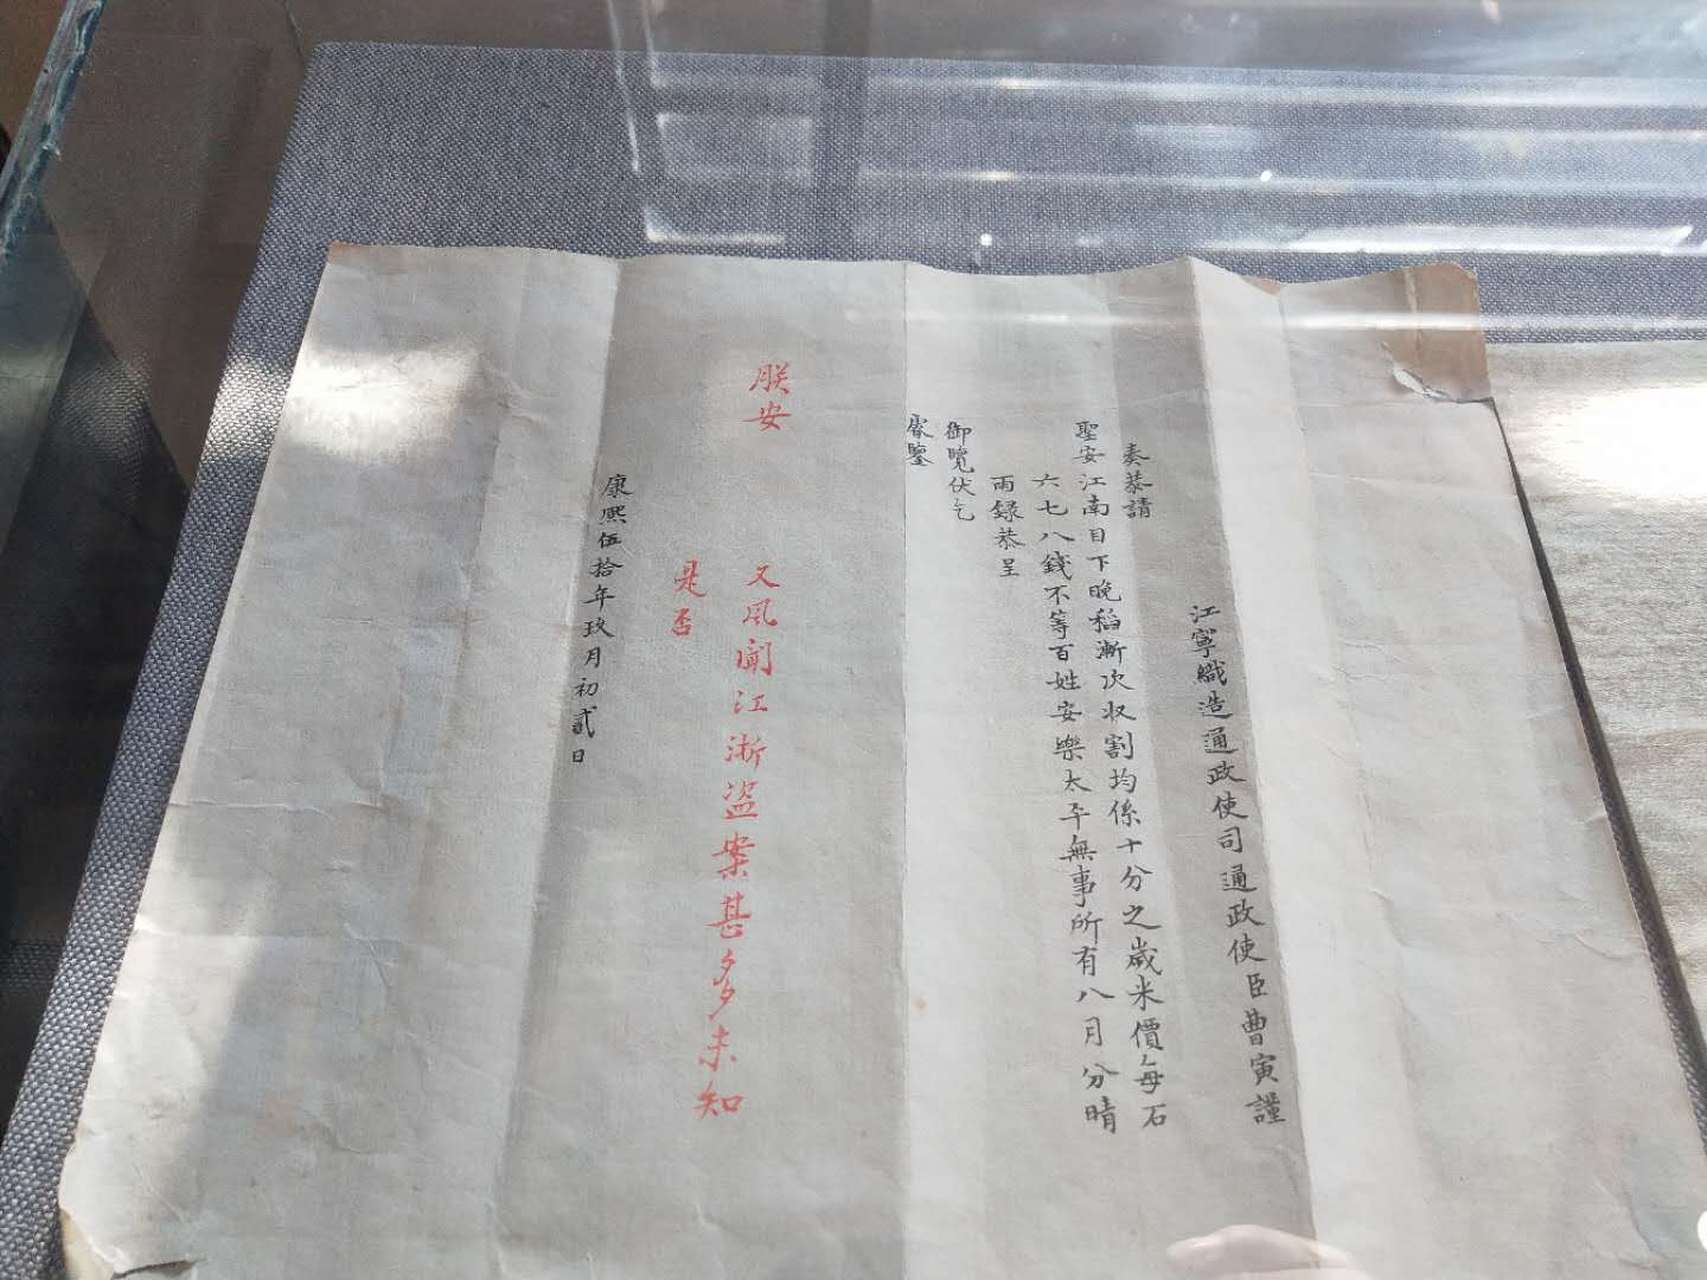 江寧織造通政使司通政使臣曹寅謹
奏恭請
聖安江南目下晚稻漸次収割均係十分之歲米價每石
六七八錢不等百姓安樂太平無事所有八月分晴
雨録恭呈
御覽伏乞
睿鑒
朕安
又風聞江浙盗案甚多未知
是否
康熙伍拾年玖月初貳日